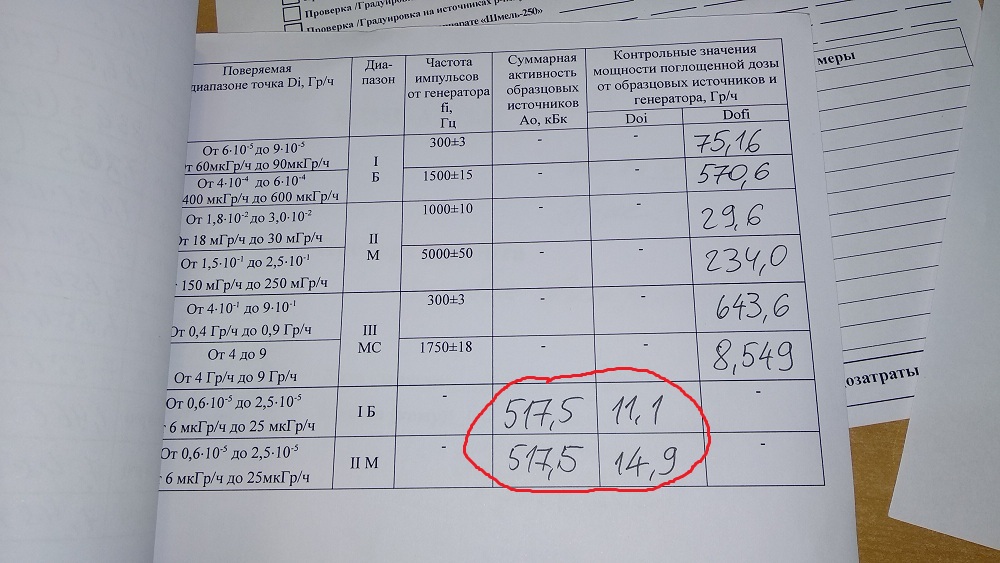 Проверка /Градуировка
Проверка /Градуировка на источниках
аппарате «Шмель-250»
меры
дозатраты
Поверяемая
диапазоне точка Di, Гр/ч
Диа-
пазон
Частота
импульсов
от генератора
fi,
Гц
Суммарная
активность
образцовых
источников
Ао, кБк
Контрольные значения
мощности поглощенной дозы
от образцовых источников и
генератора, Гр/ч
Doi Dofi
От 6·10⁻⁵ до 9·10⁻⁵
от 60мкГр/ч до 90мкГр/ч
I
Б
300±3 - - 75,16
От 4·10⁻⁴ до 6·10⁻⁴
400 мкГр/ч до 600 мкГр/ч
1500±15 - - 570,6
От 1,8·10⁻² до 3,0·10⁻²
От 18 мГр/ч до 30 мГр/ч
II
М
1000±10 - - 29,6
От 1,5·10⁻¹ до 2,5·10⁻¹
150 мГр/ч до 250 мГр/ч
5000±50 - - 234,0
От 4·10⁻¹ до 9·10⁻¹
От 0,4 Гр/ч до 0,9 Гр/ч
III
МС
300±3 - - 643,6
От 4 до 9
От 4 Гр/ч до 9 Гр/ч
1750±18 - - 8,549
От 0,6·10⁻⁵ до 2,5·10⁻⁵
6 мкГр/ч до 25 мкГр/ч
I Б - 517,5 11,1 -
От 0,6·10⁻⁵ до 2,5·10⁻⁵
6 мкГр/ч до 25мкГр/ч
II М - 517,5 14,9 -